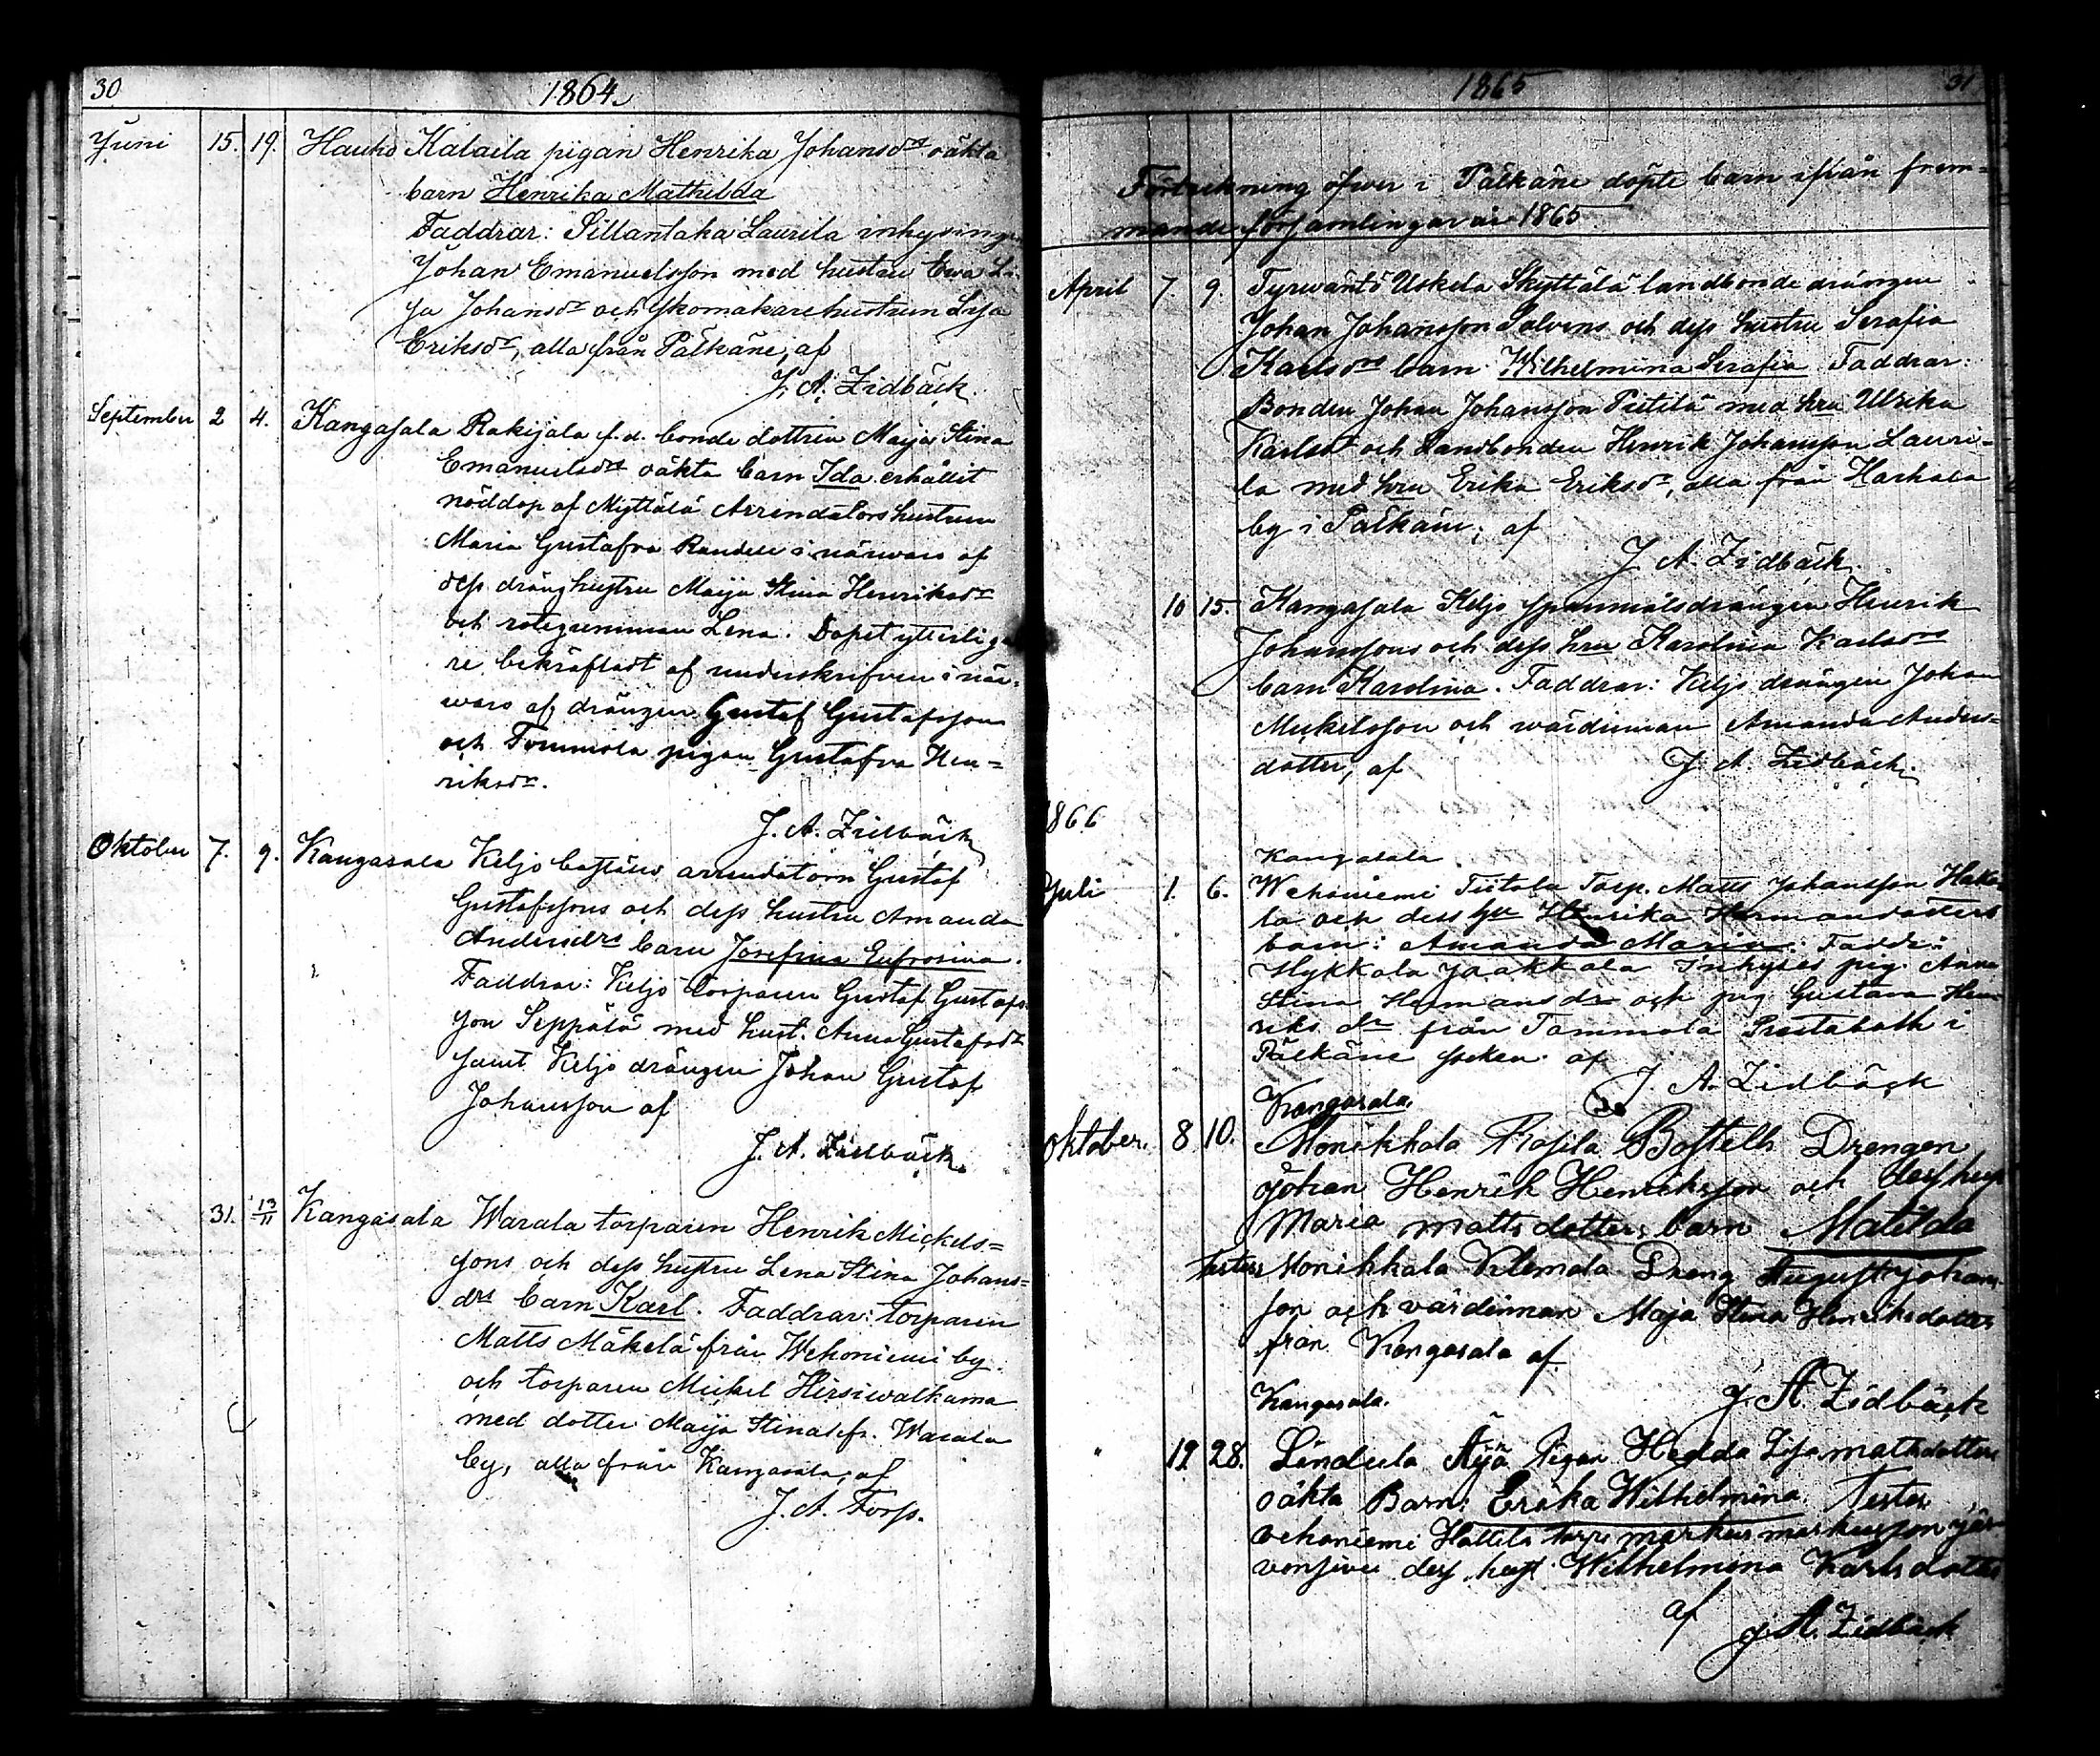 30
1864
Juni 15. 19. Hauho Kalaila pigan Henrika Johansdrs oäkta
barn Henrika Mathilda
Faddrar: Sillantaka Laurila inhysing
Johan Emanuelsson med hustru Ewa Li-
sa Johansdr och skomakarehustrun Lisa
Eriksdr, alla från Pälkäne, af
J. A. Zidbäck.
September 2 4. Kangasala Rakijala f.d. bonde dottren Maja Stina
Emanuelsdrs oäkta barn Ida erhållit
nöddop af Myttälä Arrendators hustrun
Maria Gustafva Randell i närwaro af
dess dräng hustru Maja Stina Henriksdr
och rotegumman Lena. Dopet ytterliga-
re bekräftadt af underskrifven i när-
waro af drängen Gustaf Gustafsson
och Tommola pigan Gustafva Hen-
riksdr.
J. A. Zidbäck
Oktober 7. 9. Kangasala Keljo boställs arrendatorn Gustaf
Gustafssons och dess hustru Amanda
Andersdrs barn Josefina Eufrosina.
Faddrar: Keljo torparen Gustaf Gustafs-
son Seppälä med hust. Anna Gustafsdr
samt Keljo drängen Johan Gustaf
Johansson af
J. A. Zidbäck.
31. 13/11 Kangasala Warala torparen Henrik Mickels-
sons och dess hustru Lena Stina Johans-
drs barn Karl. Faddrar: torparen
Matts Mäkelä från Wehoniemi by
och torparen Mickel Hirsiwalkama
med dotter Maja Stina fr. Warala
by, alla från Kangasala, af
J. A. Forss.
1865
31
Förtekning öfwer i Pälkäne döpte barn ifrån frem-
mande församlingar år 1865
April 7. 9. Tyrwäntö Uskela Skyttälä landbonde drängen
Johan Johansson Salvens och dess hustru Serafia
Karlsdrs barn Wilhelmina Serafia Faddrar:
Bonden Johan Johansson Pietilä med hru Ulrika
Karlsdr och Landbonden Henrik Johansson Lauri-
la med hru Erika Eriksdr, alla från Harhala
by i Pälkäne, af
J. A. Zidbäck.
10 15. Kangasala Keljo spanmålsdrängen Henrik
Johanssons och dess hru Karolina Karlsdrs
barn Karolina. Faddrar: Keljo drängen Johan
Mickelsson och wärdinnan Amanda Anders-
dotter, af J. A. Zidbäck.
1866
Kangasala
Juli 1. 6. Wehoniemi Tiitola Torp. Matts Johansson Hako-
la och dess hu Henrika Hermansdotters
barn: Amanda Maria. Faddr:
Hykkala Jaakkola Inhyses pig. Anna
Stina Hermansdr och pig Gustava Hen-
riks dr från Tommola Prestaboth i
Pälkäne socken af
J. A. Zidbäck
Kangasala.
Oktober. 8 10. Monikkala Rosila Bostells Drengen
Johan Henrik Henriksson och dess hus
Maria Matts dotters barn Matilda
Testes Monikkala Klemola Dreng August Johans-
son och värdinnan Maja Stina Henriksdotter
från Kangasala af
J. A Zidbäck
Kangasala.
" 19 28. Lindula Äijä Pigan Hedda Lisa matsdotters
oäkta Barn: Erika Wilhelmina. Testes
vehoniemi Hattila torp. markus markusson Jär-
vensivu dess hust Wilhelmina Karlsdotter
af
J. A. Zidbäck